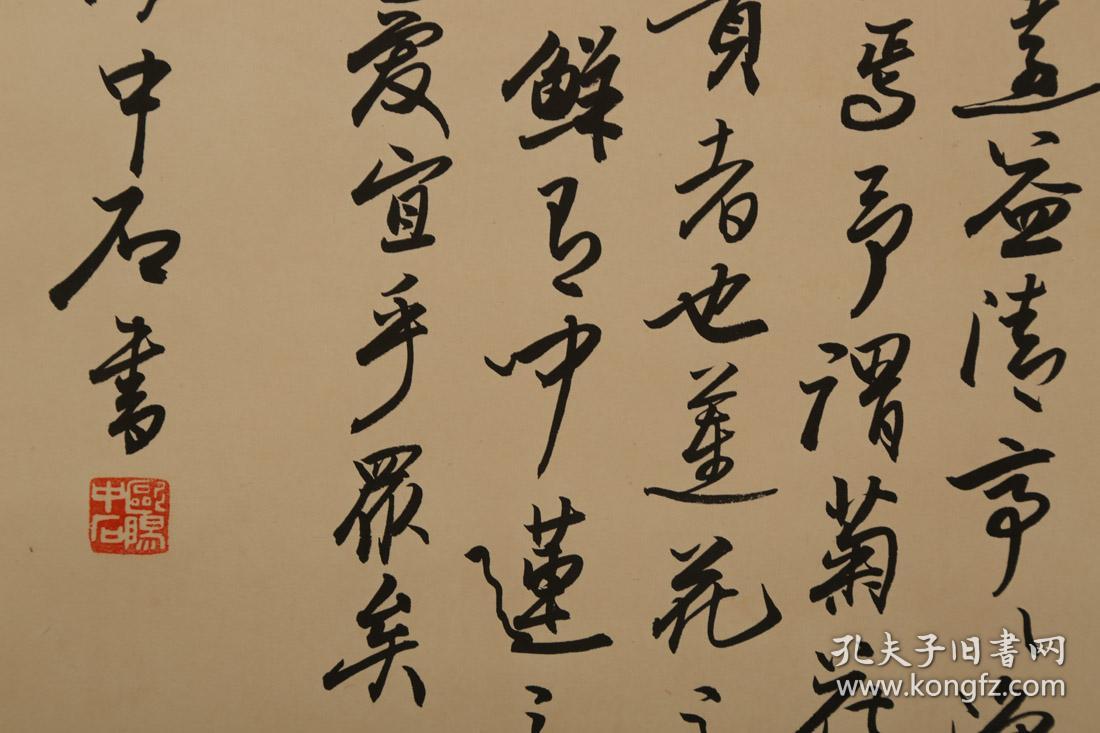 遠益清亭〻淨
焉予謂菊花
貴者也蓮花之
鮮有聞蓮之
愛宜乎眾矣
中石書
歐陽中石
孔夫子旧书网
www.kongfz.com